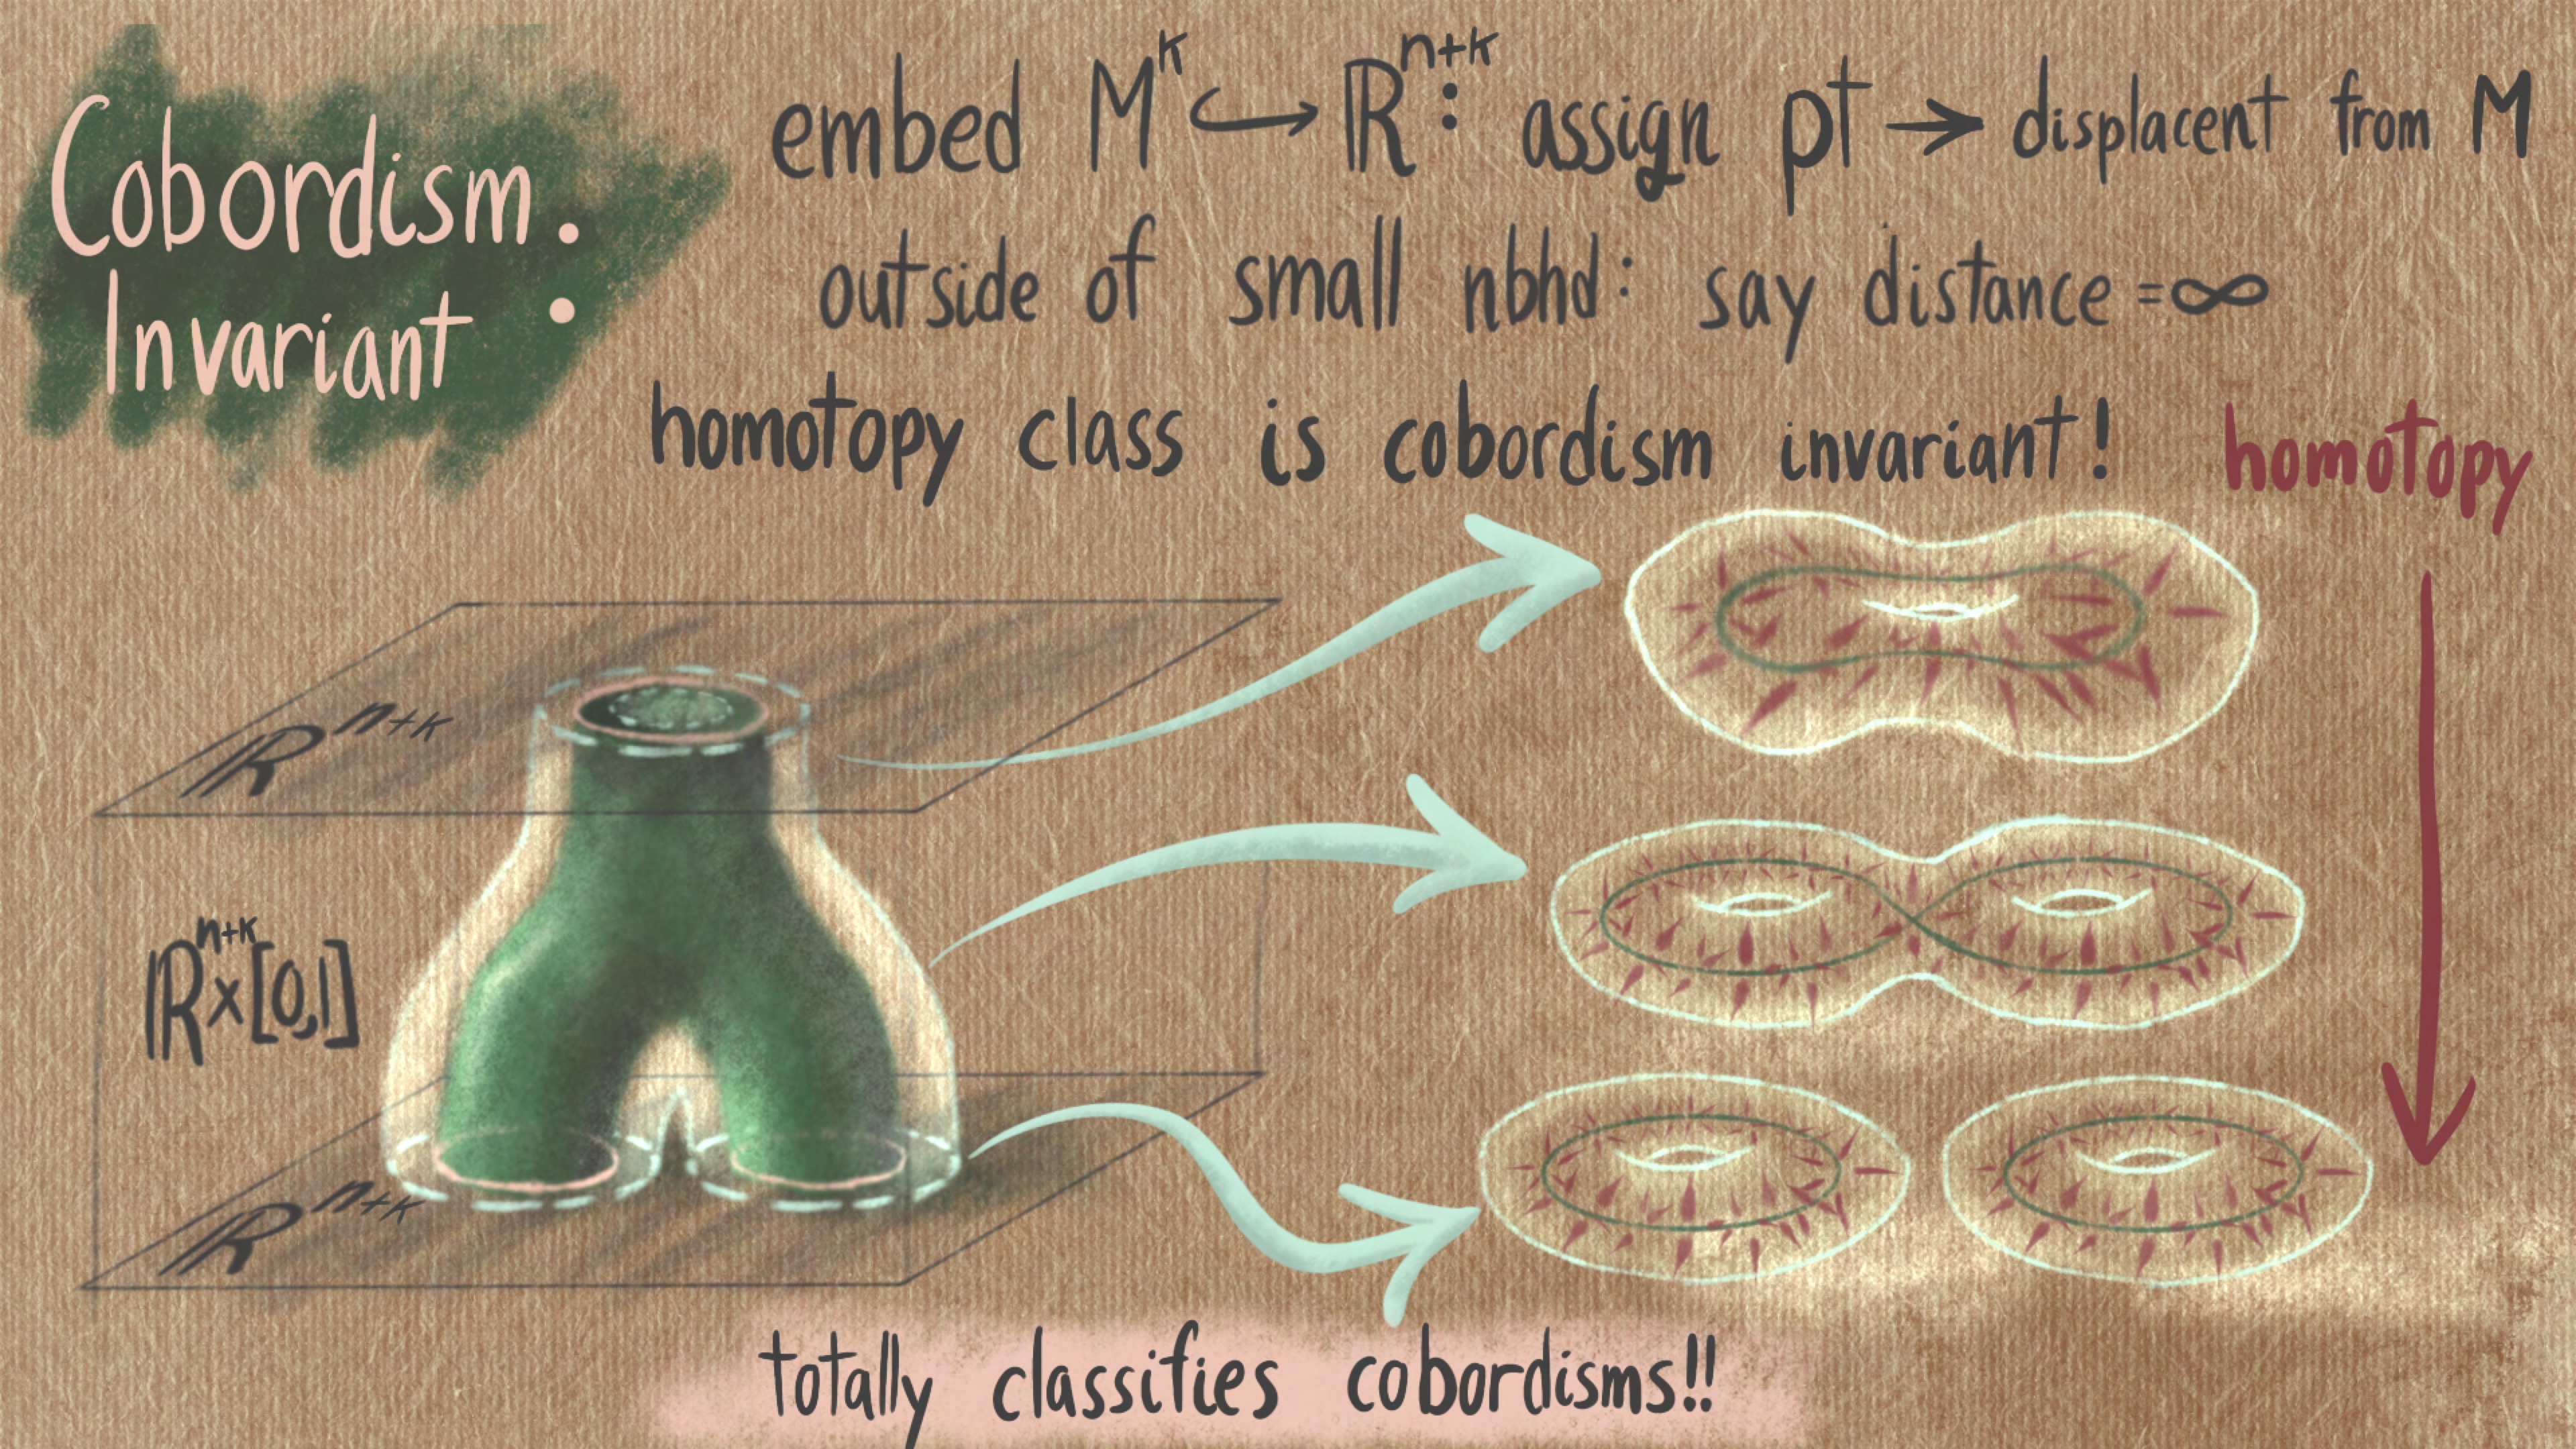 Cobordism :
Invariant :
embed Mᵏ ↪ ℝⁿ⁺ᵏ: assign pt → displacent from M
outside of small nbhd: say distance =∞
homotopy class is cobordism invariant!
homotopy
ℝⁿ⁺ᵏ
ℝⁿ⁺ᵏ×[0,1]
ℝⁿ⁺ᵏ
totally classifies cobordisms!!